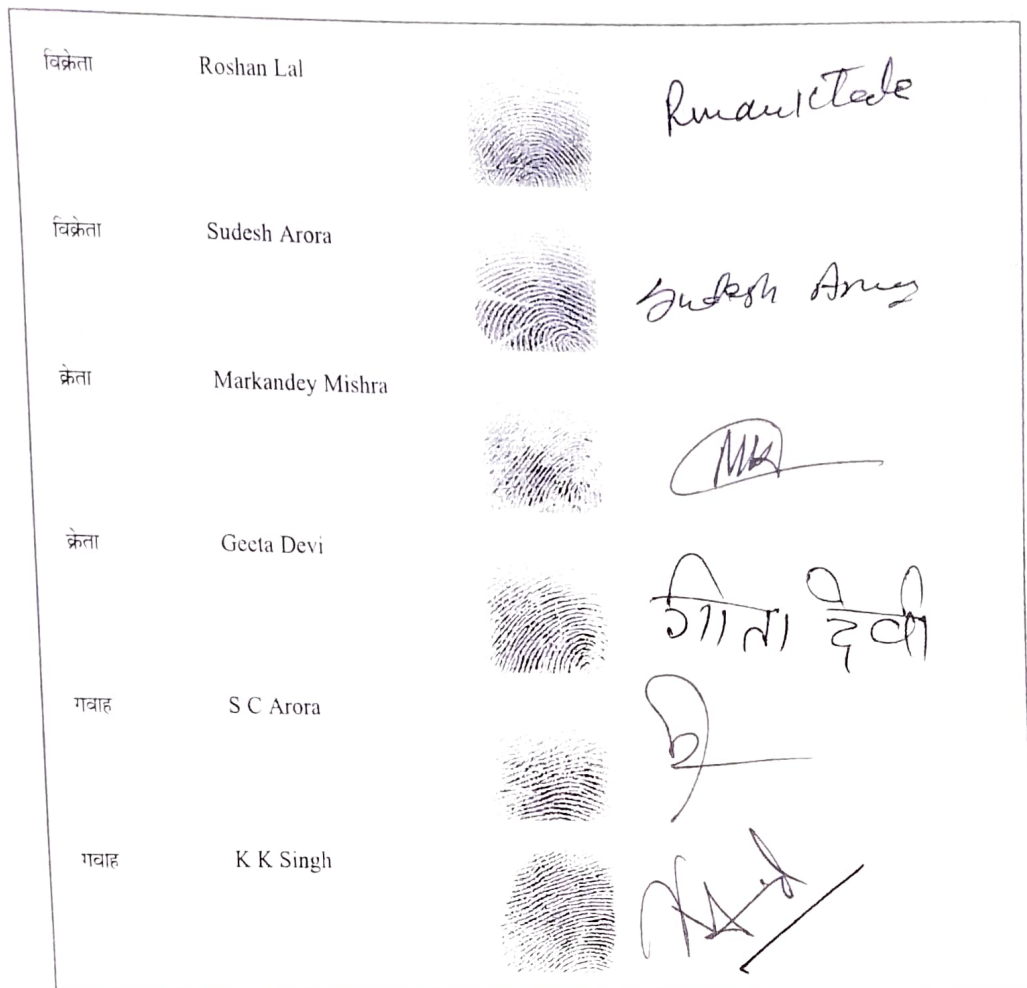 विक्रेता Roshan Lal
विक्रेता Sudesh Arora Sudesh Arora
क्रेता Markandey Mishra MK
क्रेता Geeta Devi गिता देवी
गवाह S C Arora
गवाह K K Singh